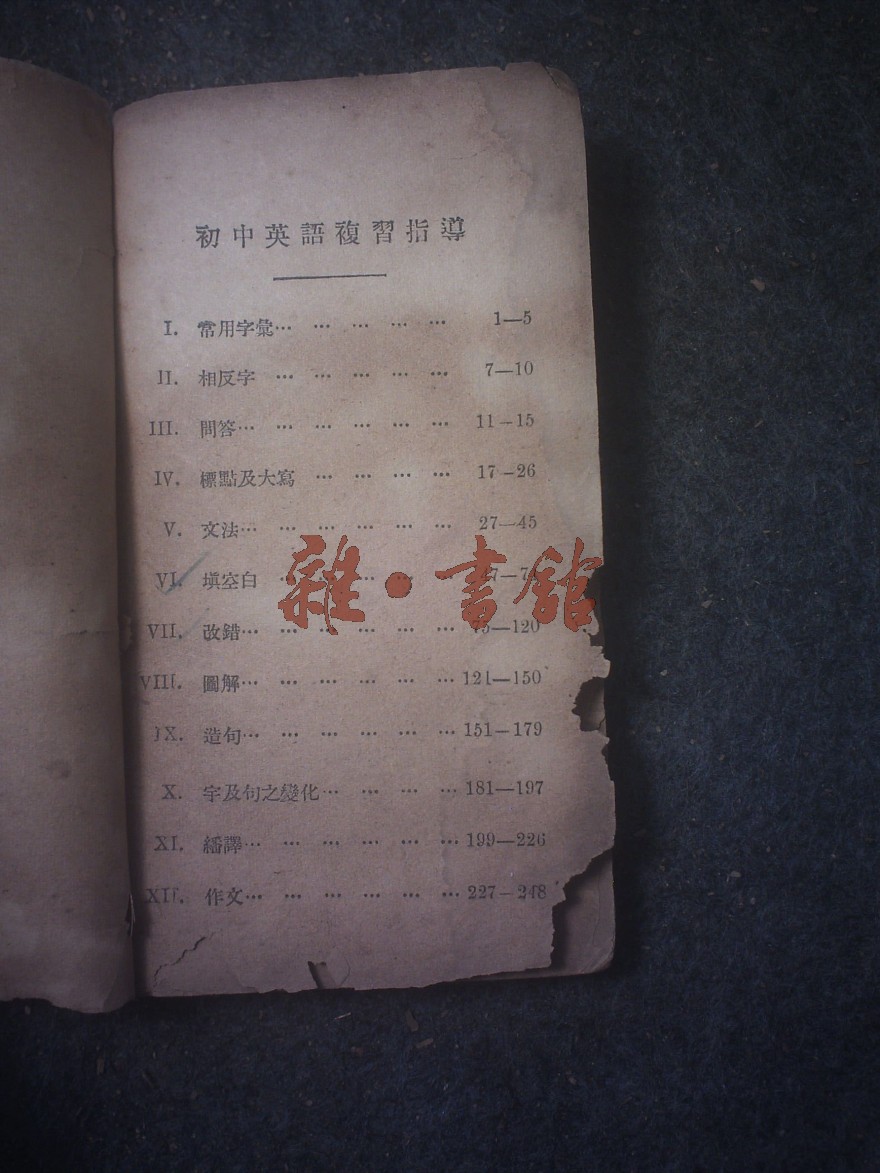 初中英語複習指導
I. 常用字彙… … … … … 1—5
II. 相反字 … … … … … 7—10
III. 問答… … … … … … 11–15
IV. 標點及大寫 … … … … 17–26
V. 文法… … … … … … 27—45
VI. 填空白 … … … …
VII. 改錯… … … … … … —120
VIII. 圖解… … … … … … 121—150
IX. 造句… … … … … … 151—179
X. 字及句之變化… … … … 181—197
XI. 繙譯… … … … … … 199—226
XII. 作文… … … … … … 227–248
雜·書館